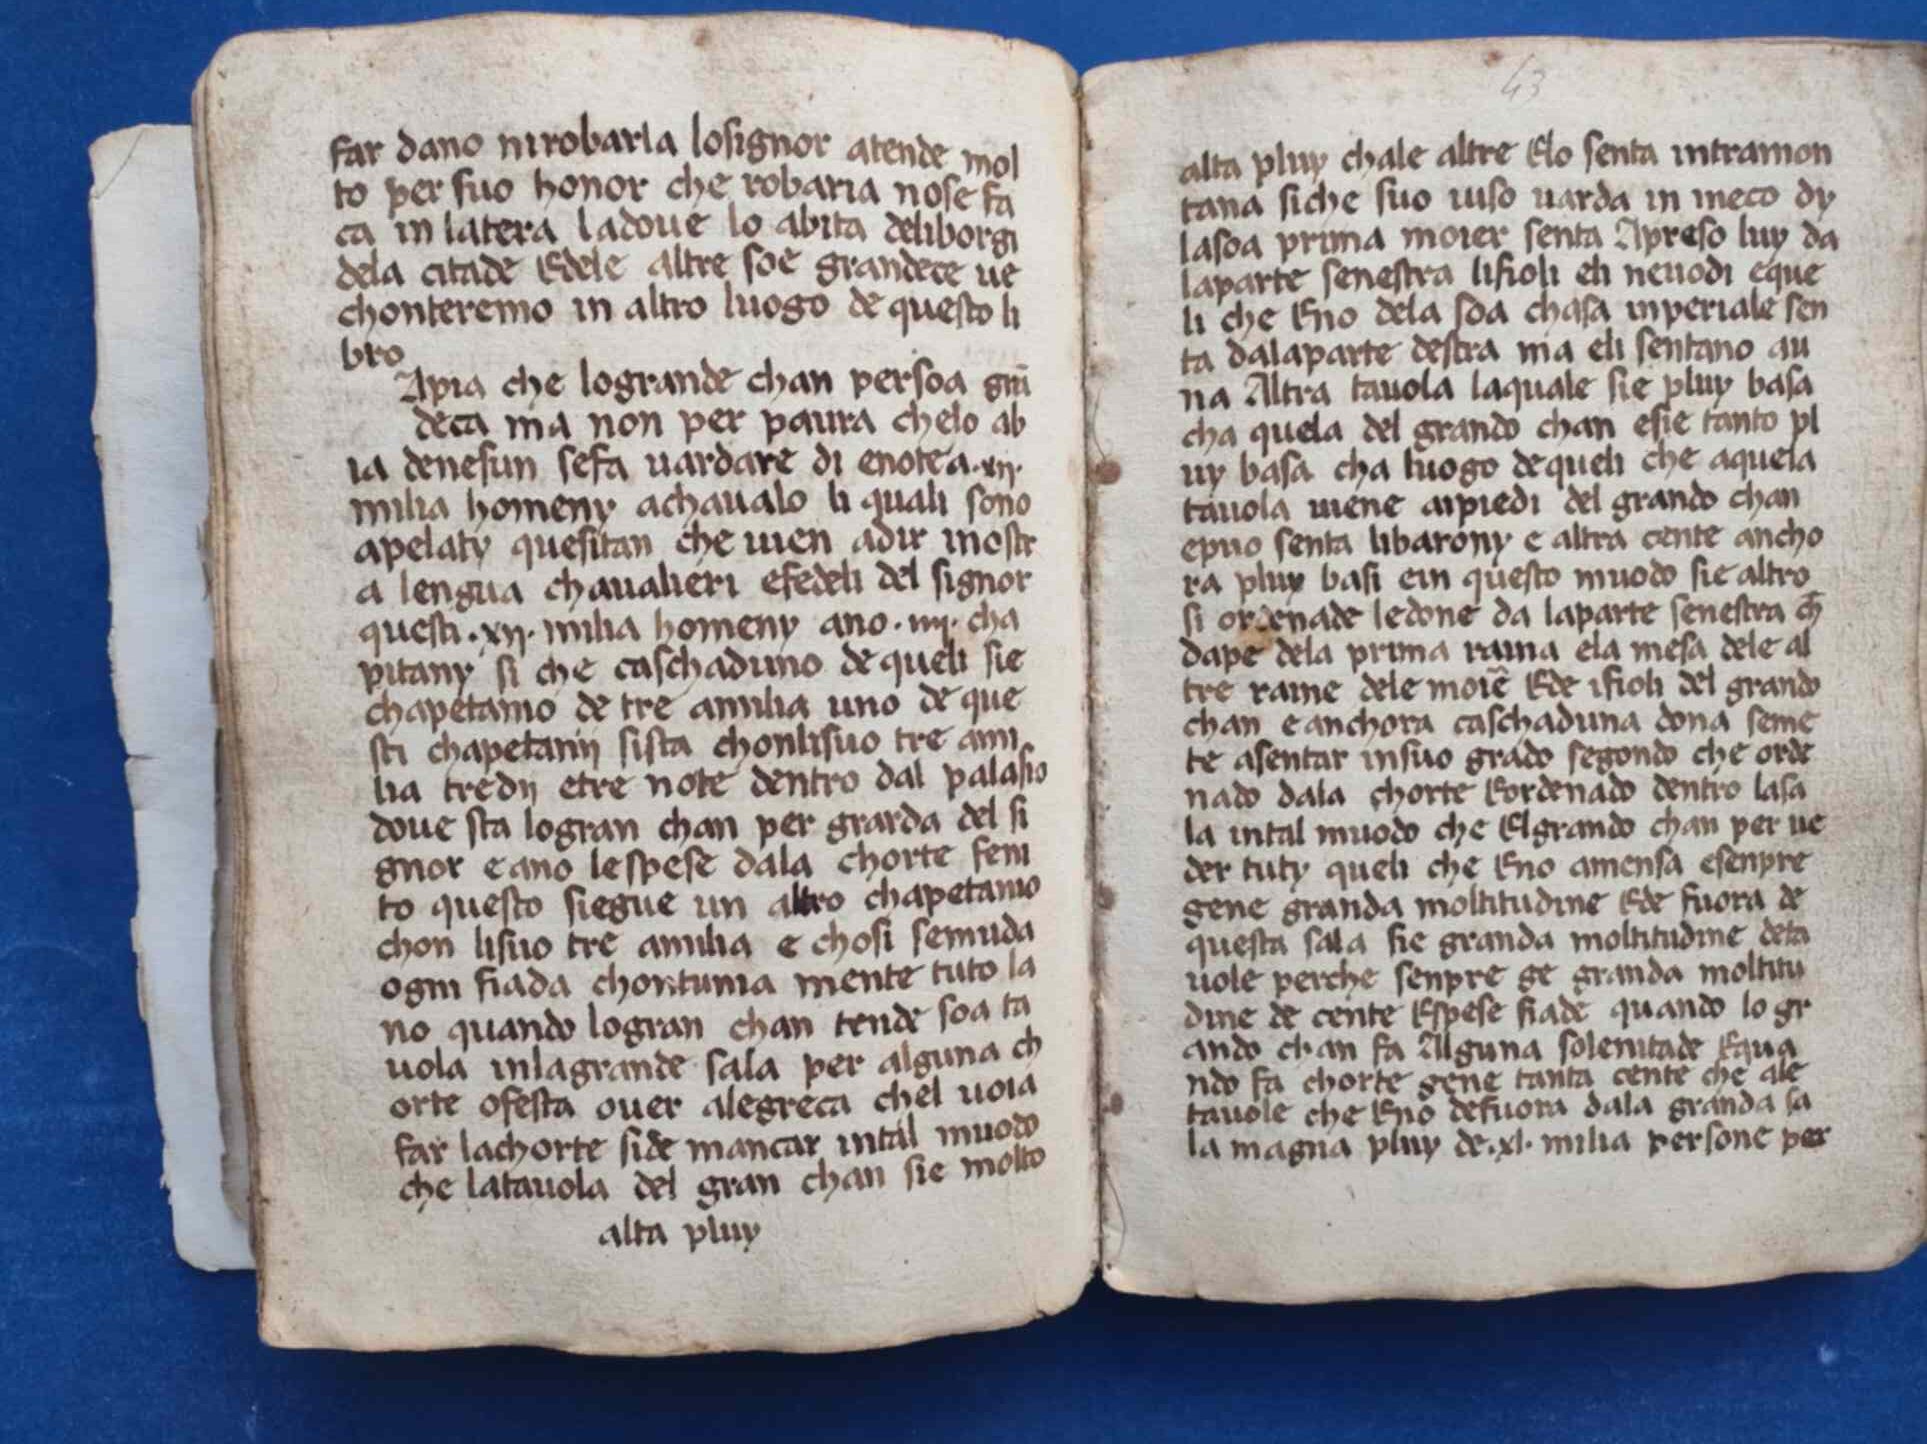 far dano nirobarla losignor atende mol
to per suo honor che robaria nose fa
ca in latera ladoue lo abita deliborgi
dela citade Edele altre soe grandece ue
chonteremo in altro luogo de questo li
bro
Apia che logrande chan persoa grā
deca ma non per paura chelo ab
ia denesun sefa uardare di enote a .xij.
milia homeny achaualo li quali sono
apelaty quesitan che uien adir inostr
a lengua chaualieri efedeli del signor
questi .xij. milia homeny ano .iiij. cha
pitany si che caschaduno de queli sie
chapetanio de tre amilia uno de que
sti chapetanij sista chonlisuo tre ami
lia tredij etre note dentro dal palasio
doue sta logran chan per grarda del si
gnor e ano lespese dala chorte feni
to questo siegue un altro chapetanio
chon lisuo tre amilia e chosi semuda
ogni fiada chontunia mente tuto la
no quando logran chan tende soa ta
uola inlagrande sala per alguna ch
orte ofesta ouer alegreca chel uoia
far lachorte side mancar intal muodo
che latauola del gran chan sie molto
alta pluy
43
alta pluy chale altre Elo senta intramon
tana siche suo uiso uarda in meco dy
lasoa prima moier senta Apreso luy da
laparte senestra lifioli eli neuodi eque
li che Eno dela soa chasa inperiale sen
ta dalaparte destra ma eli sentano au
na Altra tauola laquale sie pluy basa
cha quela del grando chan esie tanto pl
uy basa cha luogo dequeli che aquela
tauola uiene aipiedi del grando chan
epuo senta libarony e altra cente ancho
ra pluy basi ein questo muodo sie altro
si ordenade ledone da laparte senestra ch̄
dape dela prima raina ela mesa dele al
tre raine dele moiē Ede ifioli del grando
chan e anchora caschaduna dona seme
te asentar insuo grado segondo che orde
nado dala chorte Eordenado dentro lasa
la intal muodo che Elgrando chan per ue
der tuty queli che Eno amensa esenpre
gene granda moltitudine Ede fuora de
questa sala sie granda moltitudine deta
uole perche senpre ge granda moltitu
dine de cente Espese fiade quando lo gr
ando chan fa Alguna solenitade Equa
ndo fa chorte gene tanta cente che ale
tauole che Eno defuora dala granda sa
la magna pluy de .xl. milia persone per